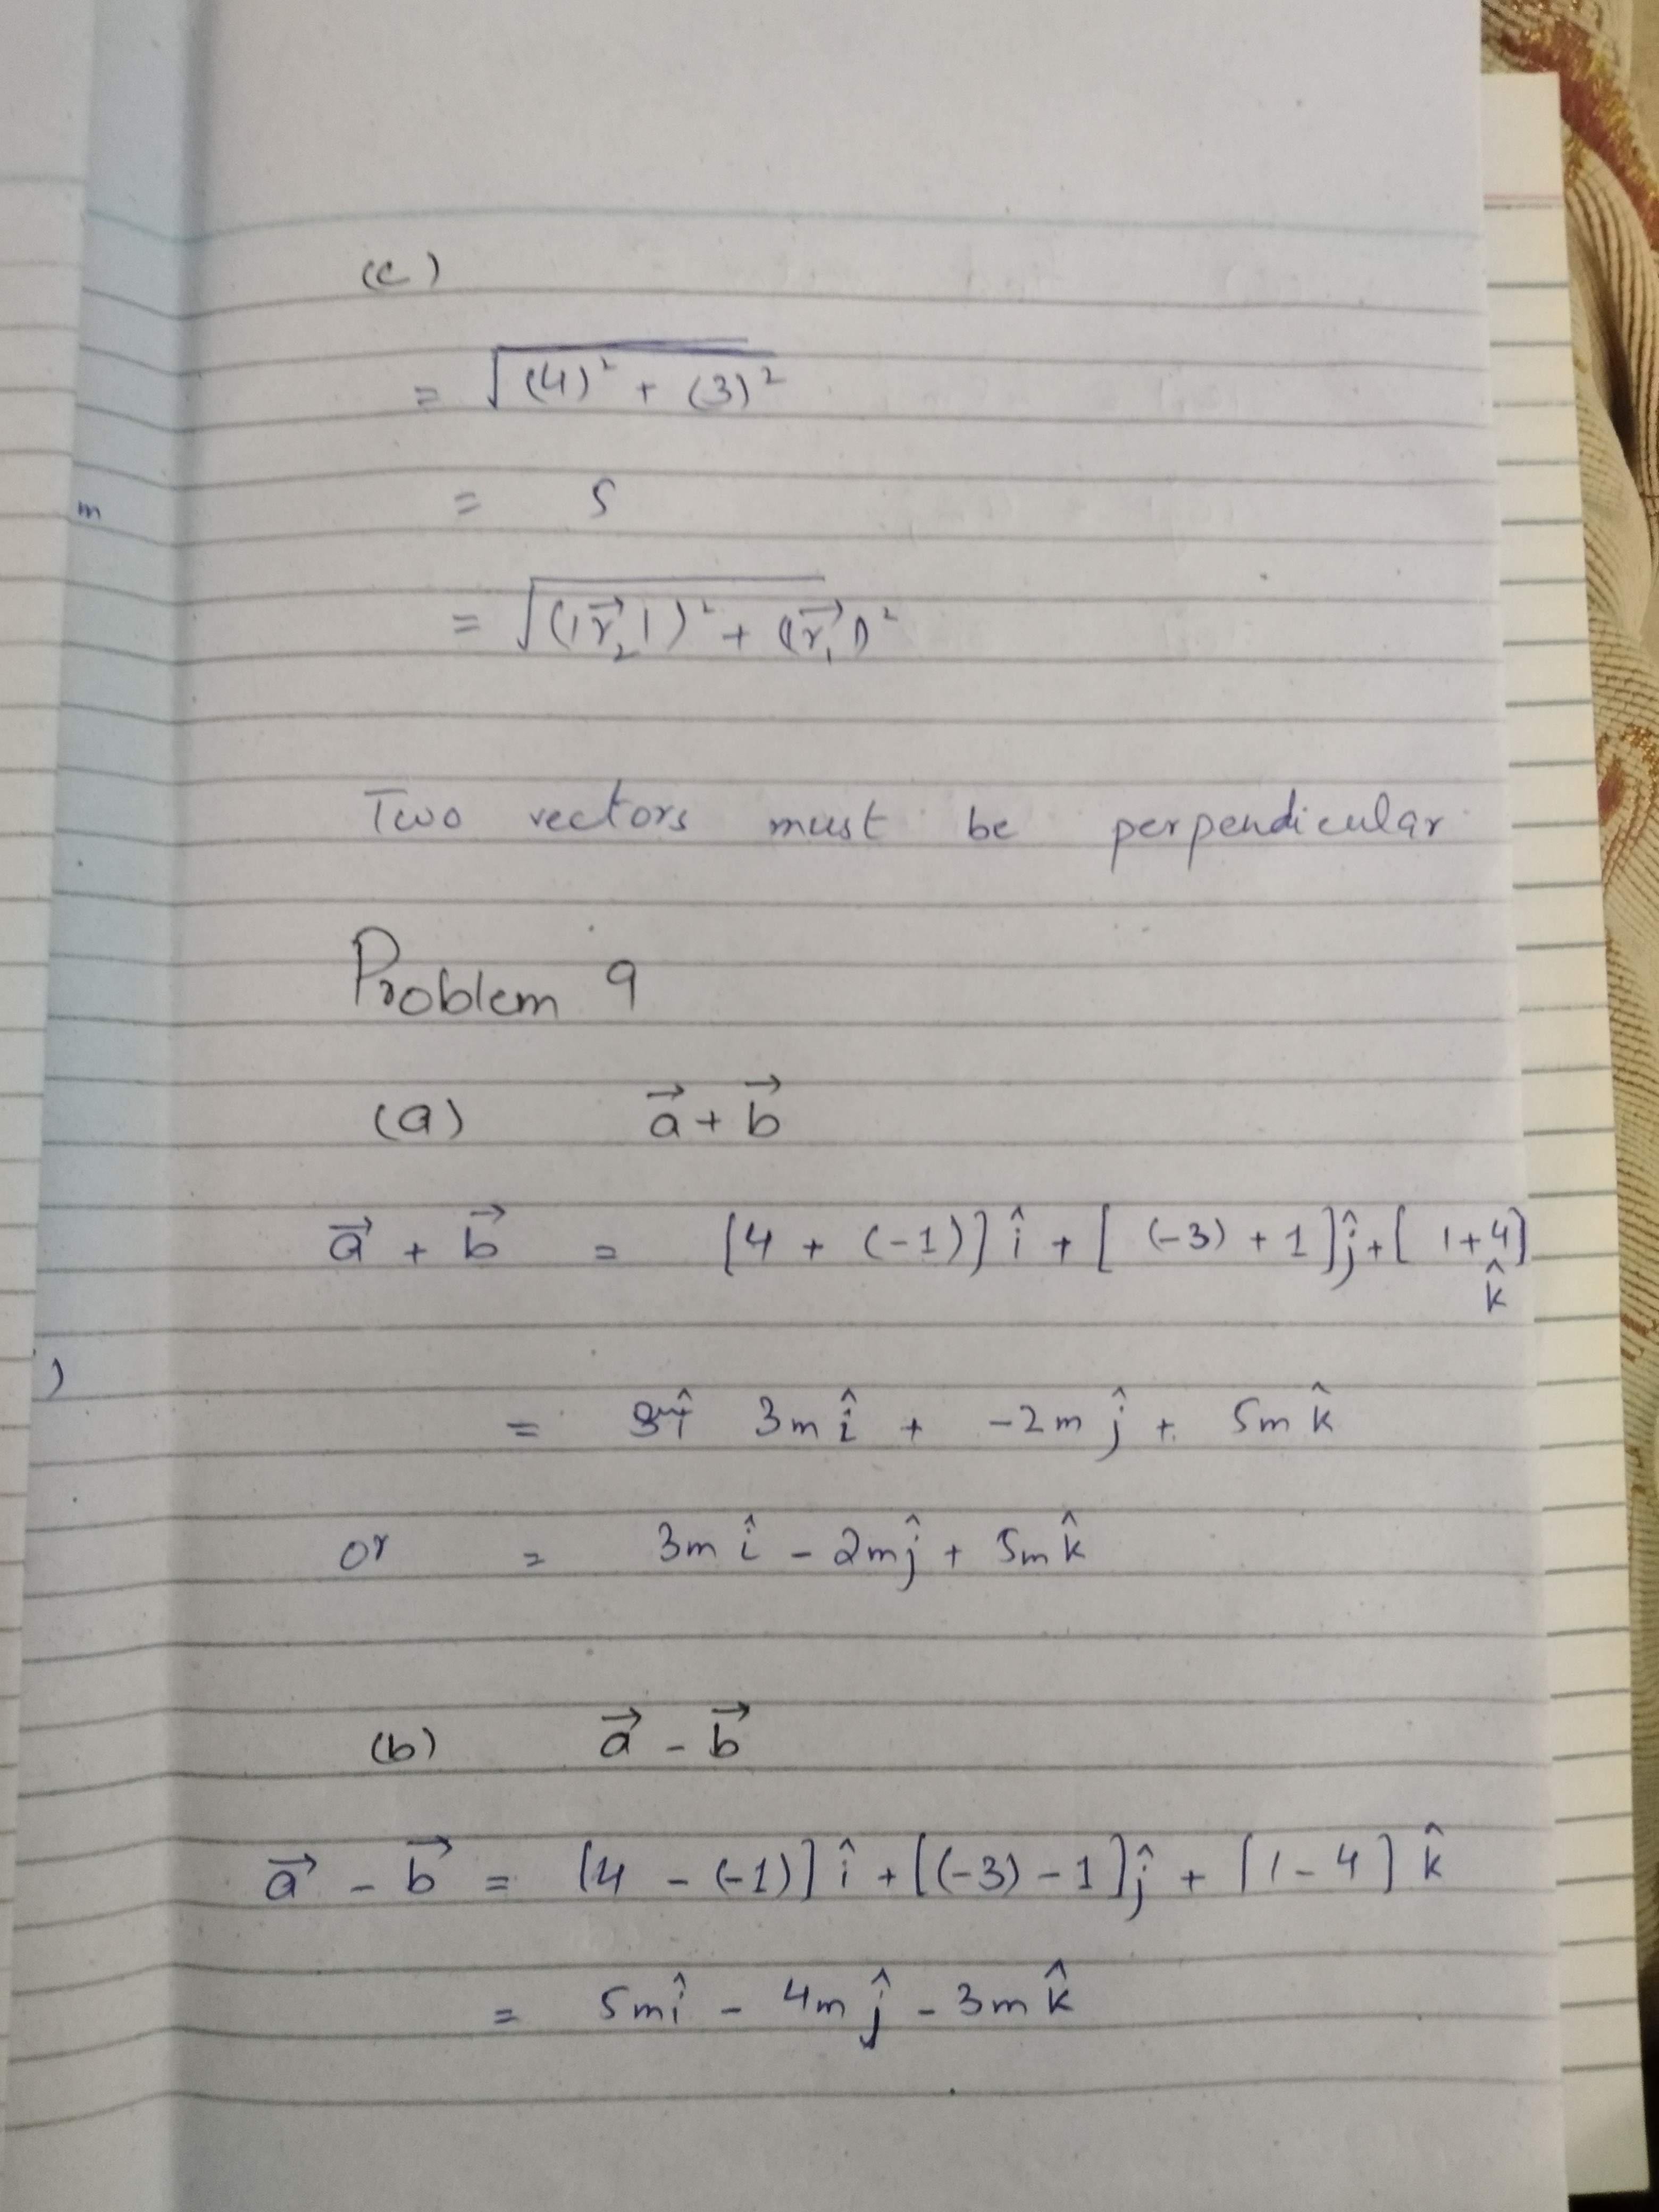 (c)
= √(4)² + (3)²
m
= 5
= √(|r⃗₂|)² + (|r⃗₁|)²
Two vectors must be perpendicular
Problem 9
(a) a⃗ + b⃗
a⃗ + b⃗ = [4 + (-1)] î + [(-3) + 1] ĵ + [1+4]
k̂
)
= 3mî + -2mĵ + 5mk̂
or = 3mî - 2mĵ + 5mk̂
(b) a⃗ - b⃗
a⃗ - b⃗ = [4 - (-1)] î + [(-3) - 1] ĵ + [1 - 4] k̂
= 5mî - 4mĵ - 3mk̂